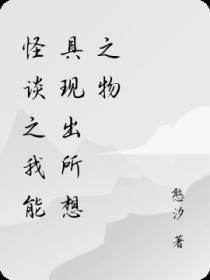 怪谈之我能
具现出所想
之物
憨汐 著